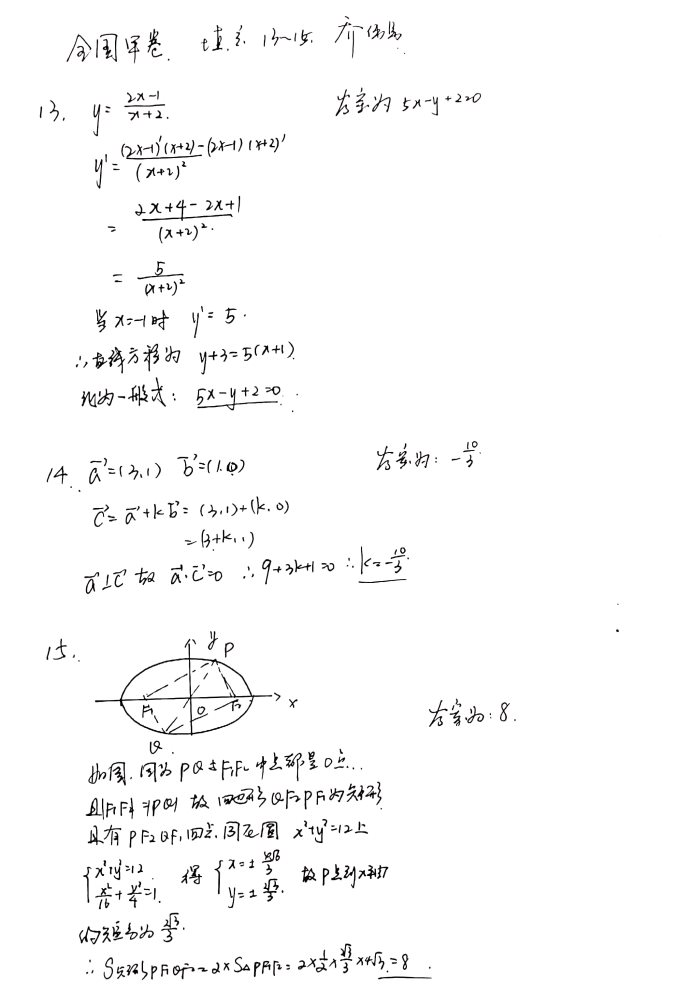 全国甲卷. 填空 13~15.
13. y = (2x-1)/(x+2).
答案为 5x-y+2=0
y' = ((2x-1)'(x+2)-(2x-1)(x+2)')/(x+2)²
= (2x+4-2x+1)/(x+2)².
= 5/(x+2)²
当 x=-1时 y'=5.
∴直线方程为 y+3=5(x+1)
化为一般式: 5x-y+2=0.
14. a⃗=(3,1) b⃗=(1,0)
答案为: -10/3
c⃗=a⃗+kb⃗=(3,1)+(k,0)
=(3+k,1)
a⃗⊥c⃗ 故 a⃗·c⃗=0 ∴9+3k+1=0 ∴k=-10/3
15.
y P
F₁ O F₂ x
Q
答案为: 8.
如图, 因为 PQ与F₁F₂中点都是O点...
且|F₁F₂|=|PQ| 故 四边形QF₂PF₁为矩形
且有 PF₂QF₁四点, 同在圆 x²+y²=12上
{x²+y²=12 x²/16+y²/4=1. 得 {x=±4√6/3 y=±2√3/3. 故P点到x轴
的距离为 2√3/3.
∴S矩形PF₁QF₂=2×S△PF₁F₂=2×1/2×2√3/3×4√3=8.